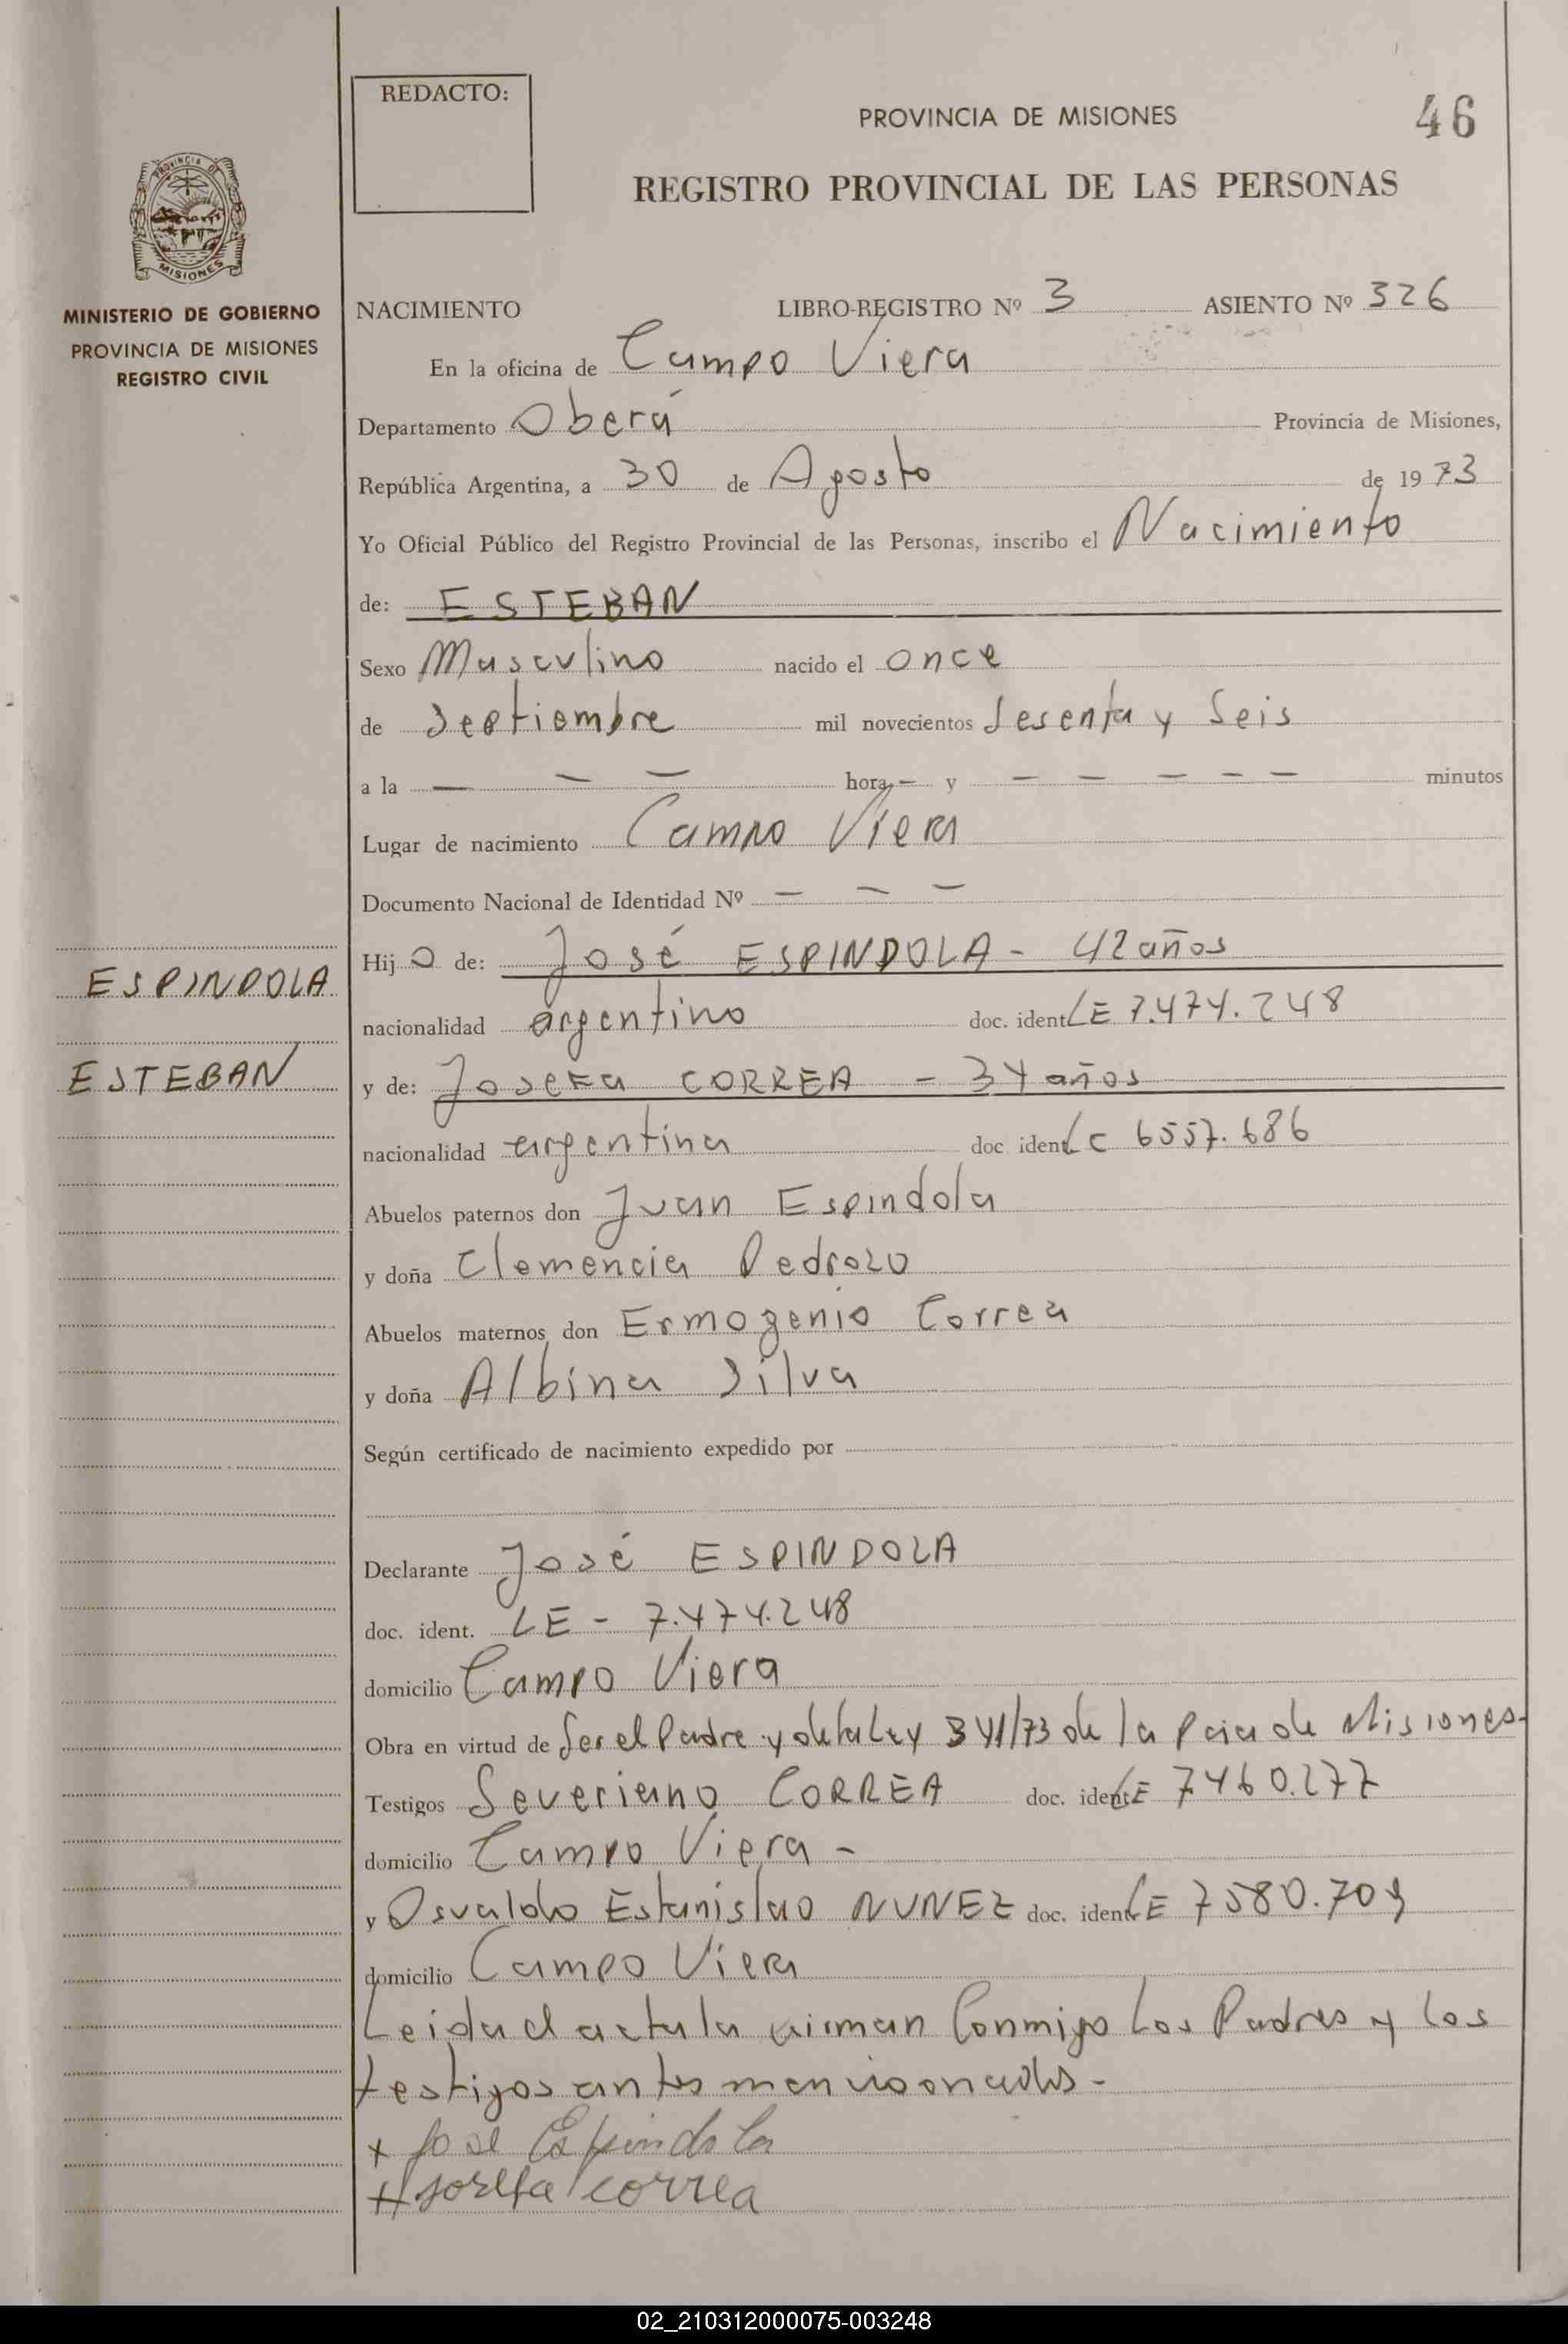 REDACTO:
PROVINCIA DE MISIONES
46
REGISTRO PROVINCIAL DE LAS PERSONAS
PROVINCIA DE
MISIONES
MINISTERIO DE GOBIERNO
PROVINCIA DE MISIONES
REGISTRO CIVIL
NACIMIENTO LIBRO-REGISTRO Nº 3 ASIENTO Nº 326
En la oficina de Campo Viera
Departamento Oberá Provincia de Misiones,
República Argentina, a 30 de Agosto de 1973
Yo Oficial Público del Registro Provincial de las Personas, inscribo el Nacimiento
de: ESTEBAN
Sexo Masculino nacido el once
de Septiembre mil novecientos Sesenta y Seis
a la — — — hora — y — — — — — — minutos
Lugar de nacimiento Campo Viera
Documento Nacional de Identidad Nº — — —
Hijo de: José ESPINDOLA - 42 años
ESPINDOLA
nacionalidad argentino doc. ident. LE 7.474.248
ESTEBAN
y de: Josefa CORREA - 34 años
nacionalidad argentina doc. ident. LC 6557.686
Abuelos paternos don Juan Espindola
y doña Clemencia Pedrozo
Abuelos maternos don Ermogenio Correa
y doña Albina Silva
Según certificado de nacimiento expedido por
Declarante José ESPINDOLA
doc. ident. LE - 7.474.248
domicilio Campo Viera
Obra en virtud de Ser el Padre y de la Ley 341/73 de la Pcia de Misiones-
Testigos Severiano CORREA doc. ident. LE 7460.277
domicilio Campo Viera -
y Osvaldo Estanislao NUNEZ doc. ident. LE 7580.709
domicilio Campo Viera
Leida el acta la firman Conmigo Los Padres y los
testigos antes mencionados-
+ José Espindola
+ Josefa Correa
02_210312000075-003248